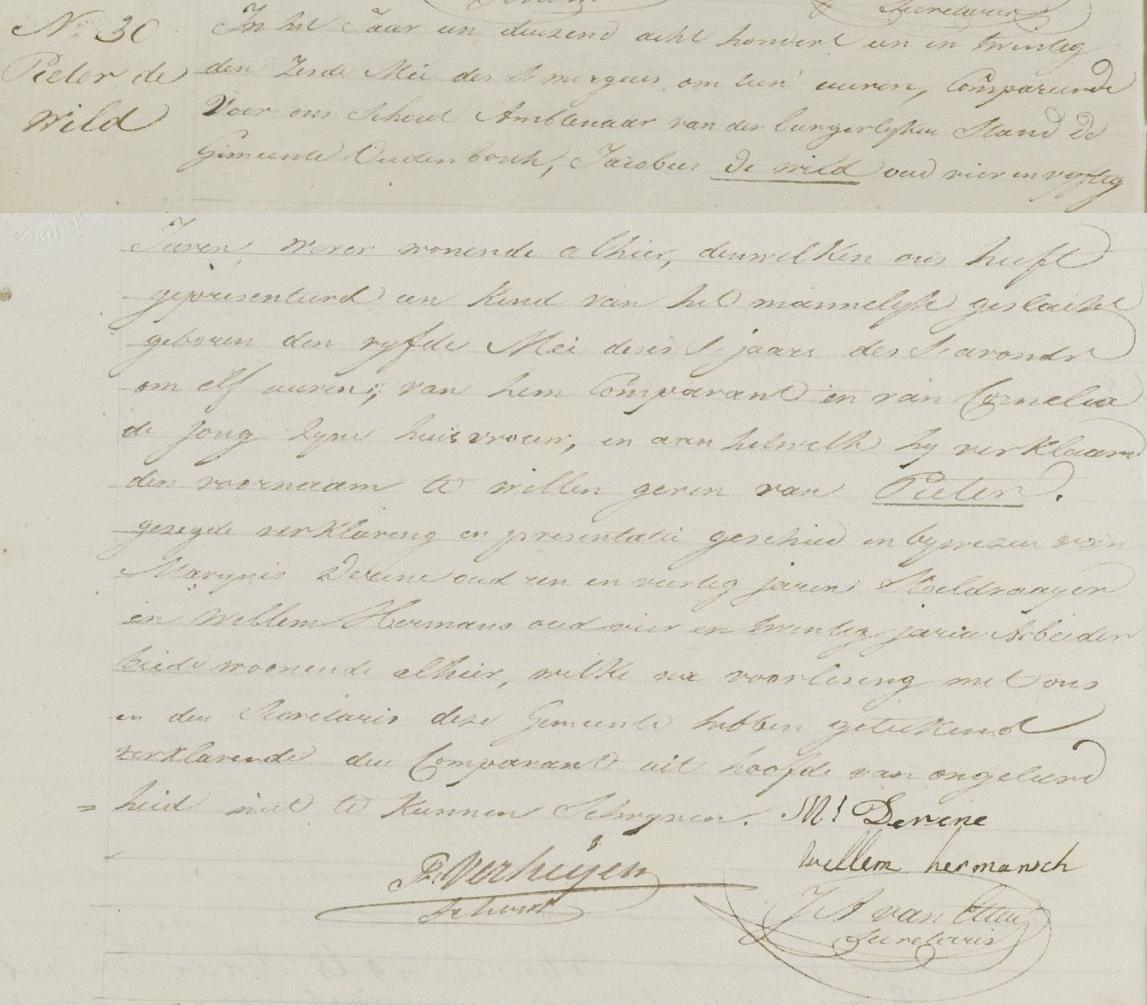 Secretaris
No. 30
Pieter de
Wild
In het Jaar een duizend acht hondert een en twintig
den Zesde Mei des S'morgens om tien uuren, Compareerde
Voor ons Schout Ambtenaar van den burgerlyken Stand de
Gemeente Oudenbosch, Jacobus de Wild oud vier en vyftig
Jaren, Wever wonende alhier, denwelken ons heeft
gepresenteerd een Kind van het mannelyk geslacht
geboren den vyfde Mei deses S jaars des S'avonds
om elf uuren, van hem Comparant en van Cornelia
de Jong zyne huisvrouw, en aan hetwelk hy verklaard
den voornaam te willen geven van Pieter.
gezegde verklaring en presentatie geschied en bywezen van
Marynis Dereine oud een en veertig jaren Stoeldraayer
en Willem Hermans oud vier en twintig jaren Arbeider
beide woonende alhier, welke na voorlesing met ons
en den Secretaris deze Gemeente hebben getekend
verklarende den Comparant uit hoofde van ongeleerd
= heid niet te Kunnen Schryven. Ms Dereine
willem hermansch
P. Verheijen
Schout
J A van
Secretaris